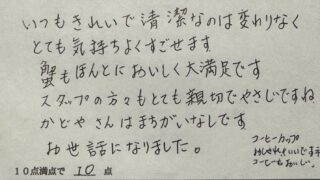 いつもきれいで清潔なのは変わりなく
とても気持ちよくすごせます
蟹もほんとにおいしく大満足です
スタッフの方々もとても親切でやさしいですね
かどやさんはまちがいなしです。
お世話になりました。
コーヒーカップ
おしゃれでいいですネ
コーヒーもおいしい。
10点満点で 10 点